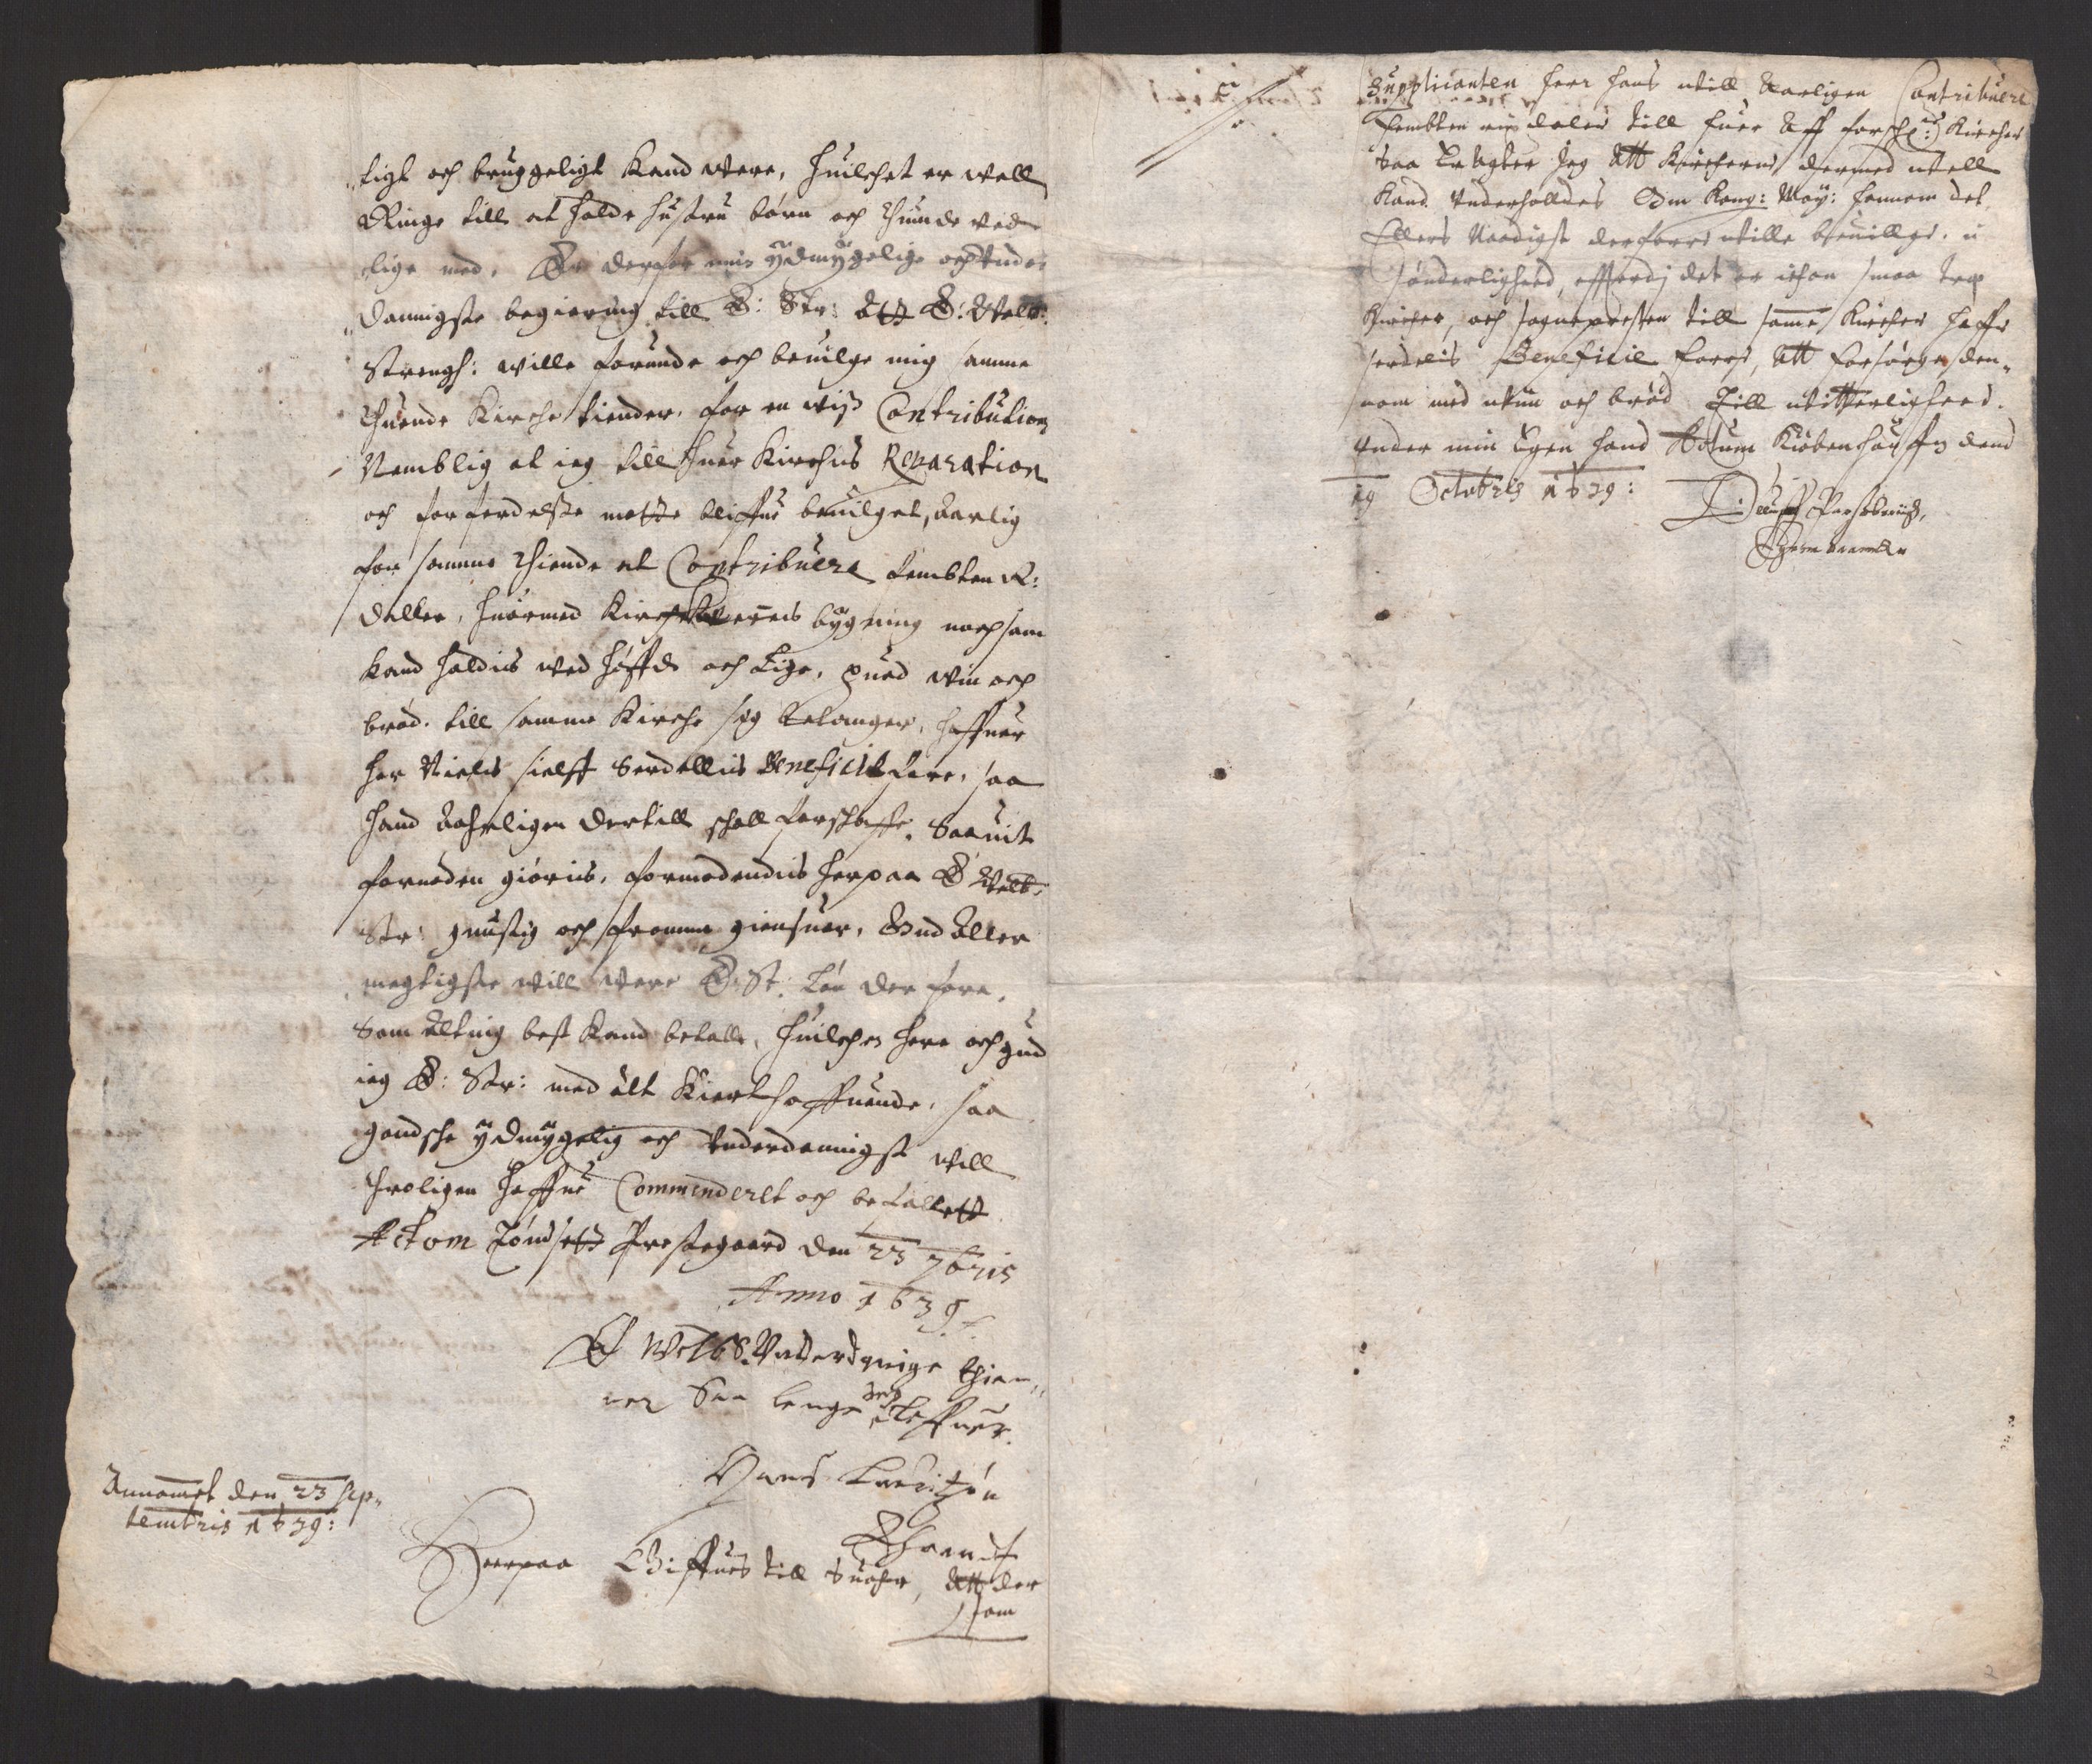 tigt och bruggeligt Kand were, huilchet er well
Ringe till at holde hustru børn och thiunde
lige med. Er derfor min ydmÿgelige och Vnder
dannigste begiering till E: Str: att E: Welb:
Strengh: wille forunde och beuilge mig samme
thuende Kirche tiender, for en wiss Contribution
Nemblig at ieg till huer Kirchis Reparation
och forferdelsse motte bliffue beuilget, Aarlig
for samme thiende at Contribuere femten R:
daller, huormed Kirchernis bÿgning nochsom
kand holdis wed heffd och Lige, huad win och
brød till samme Kirche sig belanger, haffuer
her Nielis sielff serdellis Beneficie fore, saa
hand Aahrligen dertill schall forschaffe, Saauit
fornøden giøris, formodendis herpaa E Welb:
Str: gunstig och fromme giensuar, Gud Aller
megtigste will were E: St: Løn der fore,
Som Alting best kand betalle, huilchen herre och gud
ieg E: Str: med alt Kiert haffuende, saa
gandsche ÿdmÿgelig och Vnderdannigst will
troligen haffue Commenderet och befallett
Actom Tønsett Prestegaard den 23 7bris
Anno 1639
E Welb S. Vnderdanige thien
ner Saa lenge Jeg leffuer.
Hans Lauritzøn
Annamet den 23 Sep
tembris 1639:
Herpaa Giffues till Suahr, Att der
som
Supplicanten her Hans will Aarligen Contribuere
fembten rix daler till huer Aff forsch(ne:) Kircher
Saa Eragter Jeg Att Kircherne dermed well
Kand Vnderholdes Om Kong: Maÿ: hannem det
Ellers Naadigst derforre wille beuillge. i
sønderlighed, effterdj det er ichon smaa
Kircher, och sognepresten till samme Kircher haffr
serdelis Beneficie forre, Att forsørge den
nom med wiin och brød Till witterlighed.
Vnder min Egen hand Actum Kiøbenhauffn dend
19 Octobris 1639: